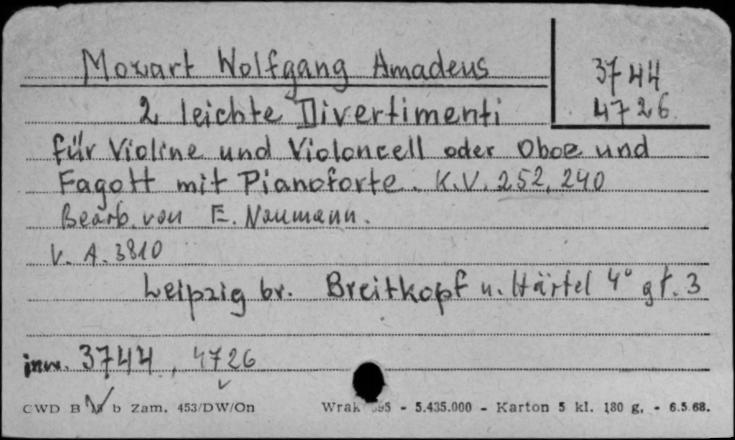 Mozart Wolfgang Amadeus
3744
4726
2 leichte Divertimenti
für Violine und Violoncell oder Oboe und
Fagott mit Pianoforte. K.V. 252, 240
Bearb. von E. Naumann.
V. A. 3810
Leipzig br. Breitkopf u. Härtel 4° gł. 3
inw. 3744, 4726
CWD B b Zam. 453/DW/On Wrak - 5.435.000 - Karton 5 kl. 180 g. - 6.5.68.